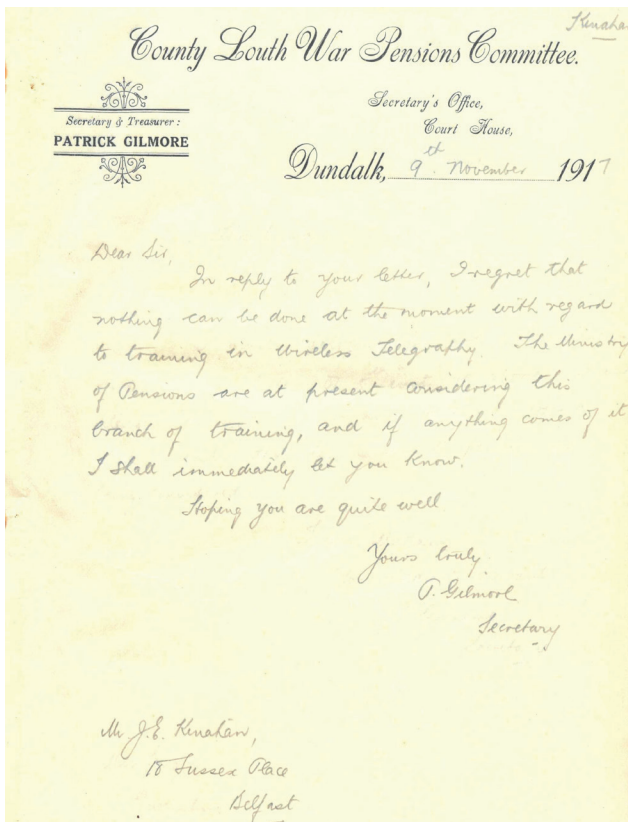 Kinahan
County Louth War Pensions Committee.
Secretary & Treasurer:
PATRICK GILMORE
Secretary's Office,
Court House,
Dundalk, 9th November 1917
Dear Sir,
In reply to your letter, I regret that
nothing can be done at the moment with regard
to training in Wireless Telegraphy. The Ministry
of Pensions are at present considering this
branch of training, and if anything comes of it
I shall immediately let you know.
Hoping you are quite well
Yours truly
P. Gilmore
Secretary
Mr J.E. Kinahan,
18 Sussex Place
Belfast